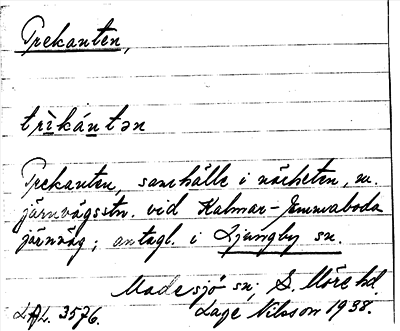 Trekanten,
trìkántən
Trekanten, samhälle i närheten, m.
järnvägsstn. vid Kalmar-Emmaboda
järnväg; antagl. i Ljungby sn.
Madesjö sn; S. Möre hd.
LAL. 3576. Lage Nilsson 1938.